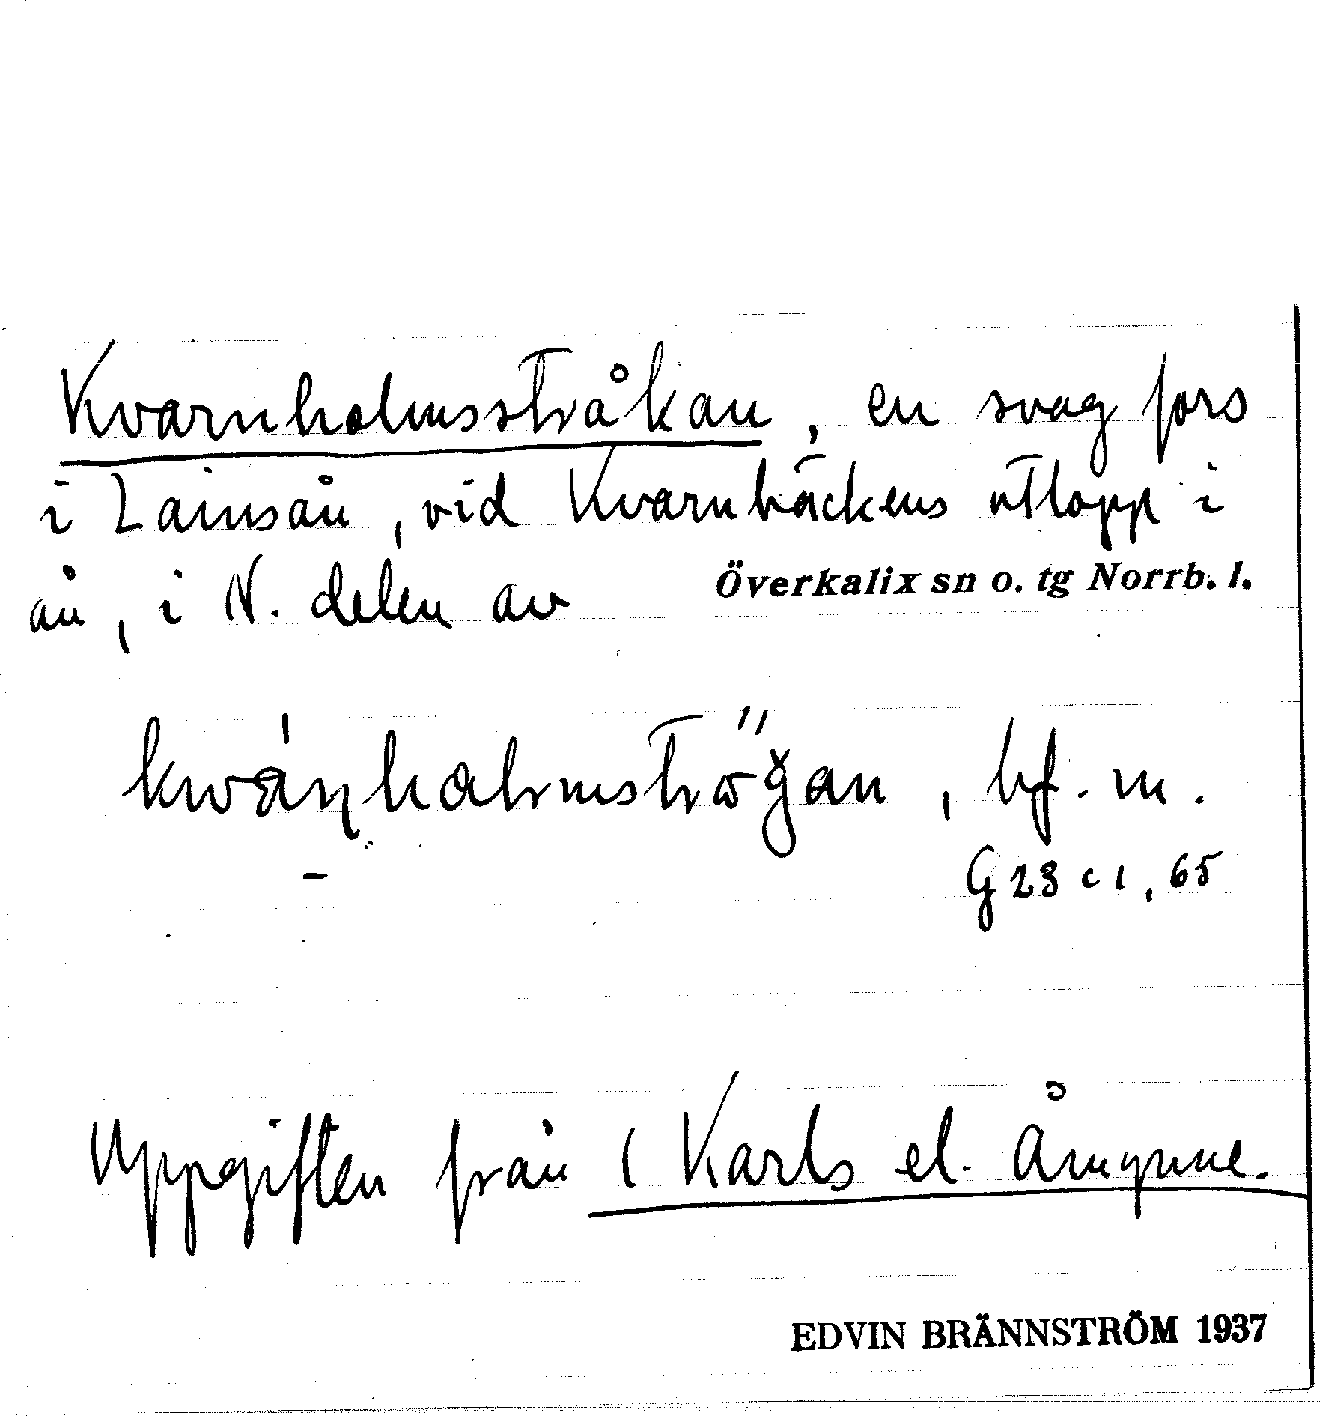 Kvarnholmsstråkan, en svag fors
i Lainsån, vid Kvarnbäckens utlopp i
ån, i N. delen av Överkalix sn o. tg Norrb. l.
bf. m.
G 23 c 1, 65
Uppgiften från 1 Karls el. Åmynne.
EDVIN BRÄNNSTRÖM 1937